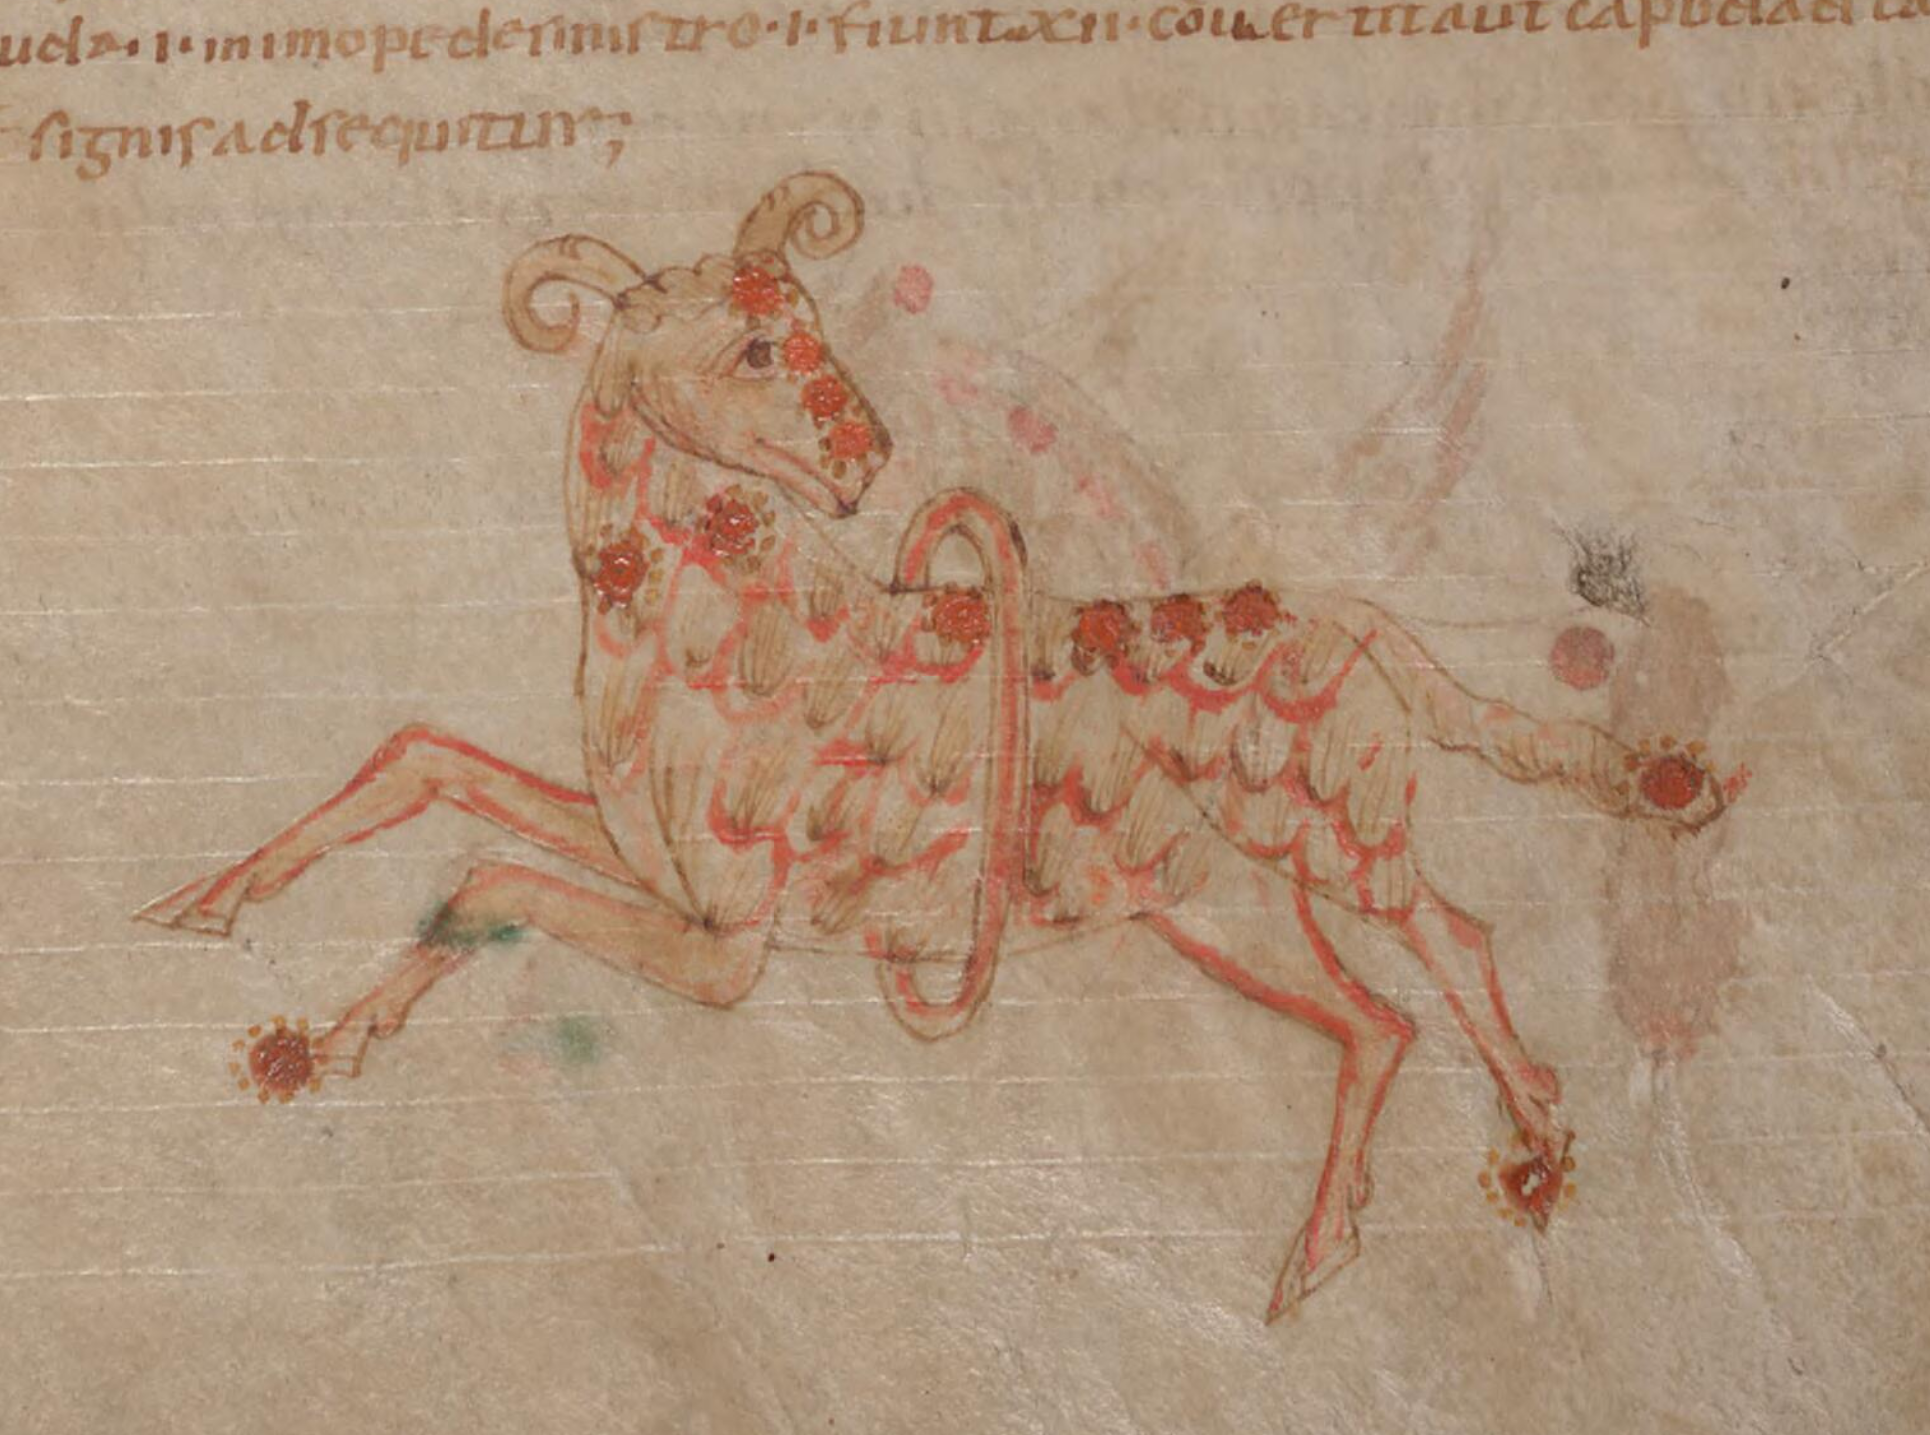 uda · i · in imo pede sinistro · i · fiunt xii · couertit aut caput ad
signis adsequitur;